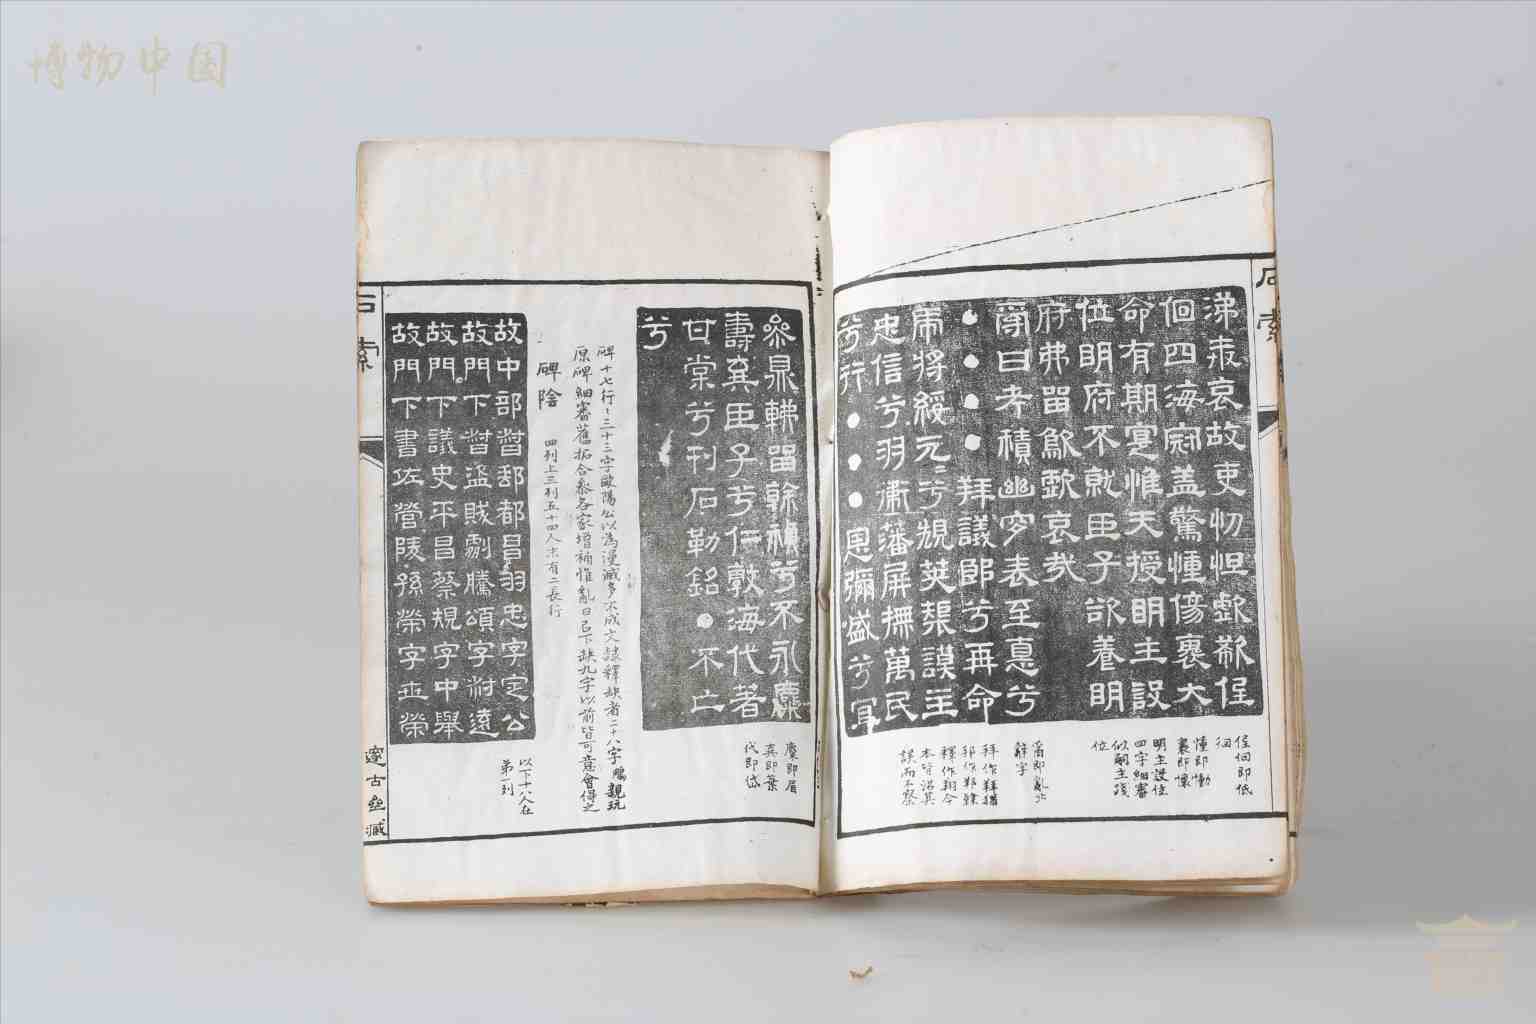 博物中国
石索
涕奉哀故吏忉怛歔欷侄
佪四海冠盖驚慟傷褱大
命有期寔惟天授明主設
位明府不就臣子欲養明
府弗留歍歔哀哉
曰考積幽窆表至惪兮
●●●●拜議郎兮再命
虎將綏元二兮規筴榘謨主
忠信兮羽衛藩屏撫萬民
兮行●●●恩彌盛兮宜
侄佪即低
徊
慟即慟
褱即懷
明主設位
四字細審
似嗣主踐
位
𤔔即亂
辭字
釋作翔今
本皆沿其
誤而不察
參鼎畱斡禎兮不永麋
壽棄臣子兮仁敷海代著
甘棠兮刊石勒銘●不亡
兮
麋即眉
棄即葉
代即岱
碑十七行行三十三字歐陽公以為漫滅多不成文隸釋缺者二十八字鵬親玩
原碑細審舊拓合參各家增補惟亂曰已下缺九字以前皆可意會得之
碑陰 四列上三列五十四人末有二長行
以下十八人在
第一列
故中部督郵都昌羽忠字定公
故門下督盗賊劇騰頌字叔遠
故門下議史平昌蔡規字中舉
故門下書佐營陵孫榮字卋榮
石索
邃古齋藏